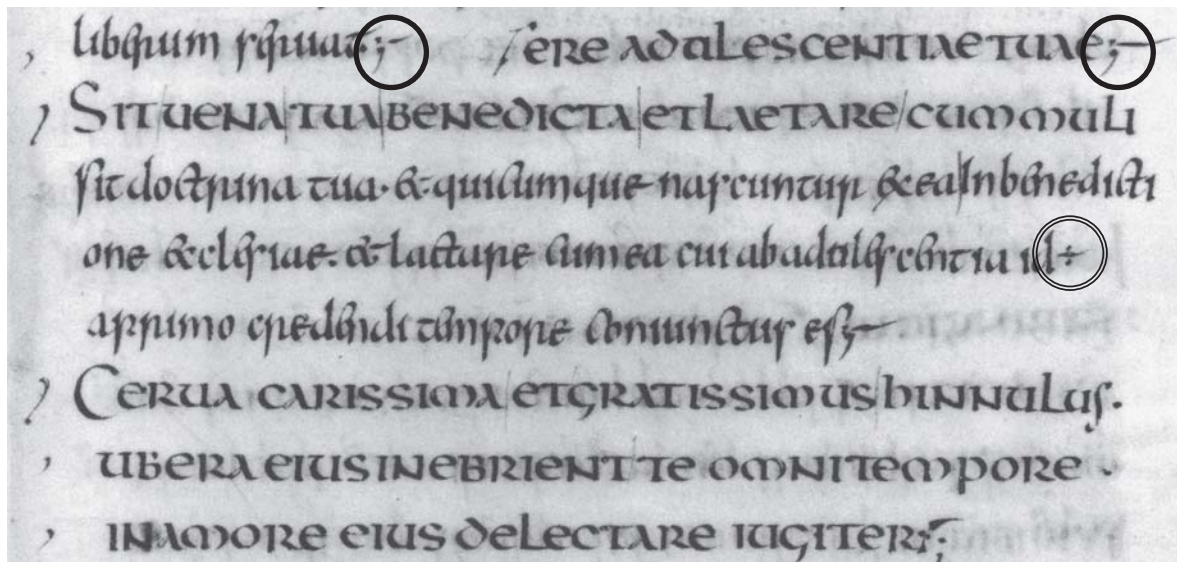 liberum seruat;– /ere adulescentiae tuae;–
Sit uena tua benedicta et laetare cum muli
sit doctrina tua· & quicumque nascuntur ex ea In benedicti
one &clesiae. & laetare cum ea cui ab adulescentia id ÷
a primo credendi tempore coniunctus es;–
Cerua carissima et gratissimus hinnulus.
ubera eius inebrient te omni tempore
in amore eius delectare iugiter;